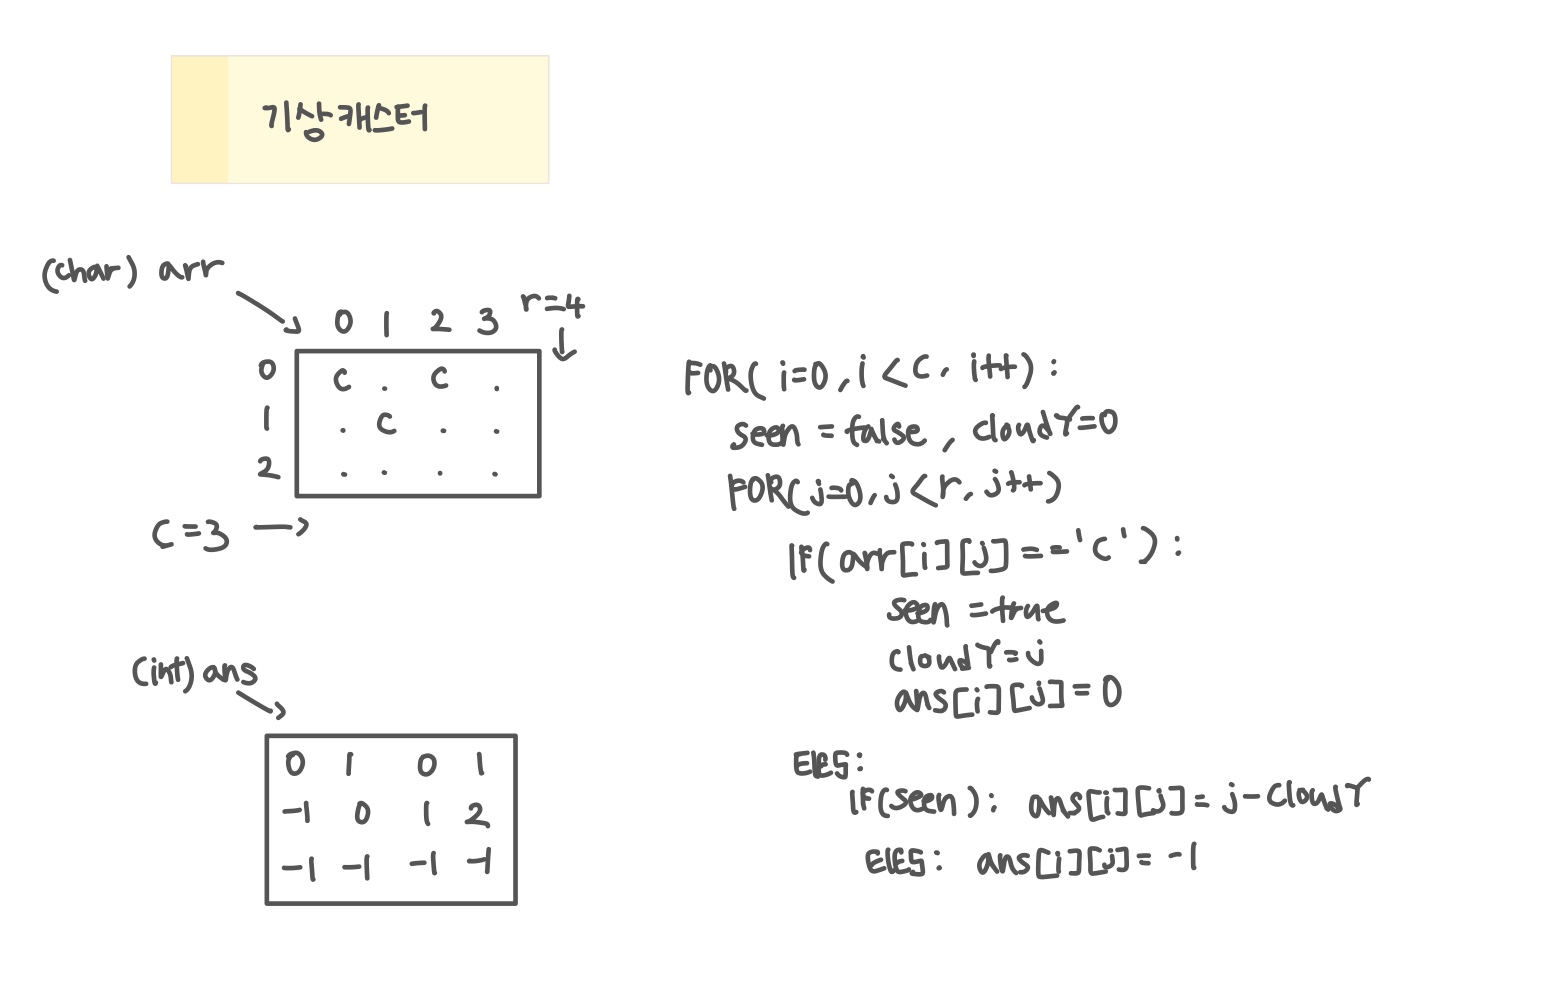 기상캐스터
(char) arr
0 1 2 3 r=4
0 c . c .
1 . c . .
2 . . . .
C=3
(int) ans
0 1 0 1
-1 0 1 2
-1 -1 -1 -1
FOR( i=0, i<C, i++) :
seen = false , cloudY=0
FOR(j=0, j<r, j++)
IF(arr[i][j]=='c') :
seen =true
cloudY=j
ans[i][j]=0
ElES:
IF(seen): ans[i][j]= j-cloudY
ElES: ans[i][j]= -1